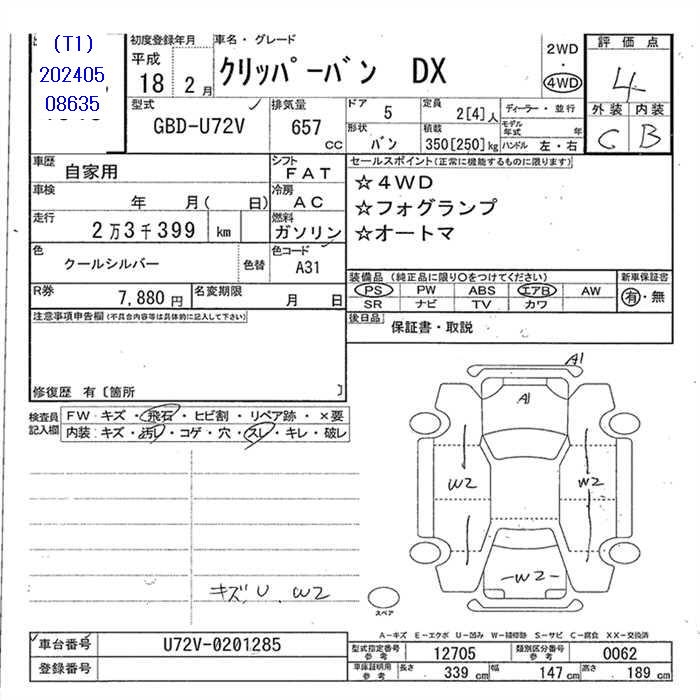 (T1)
202405
08635
初度登録年月
平成
18 2月
車名・グレード
クリッパーバン DX
2WD
・
4WD
評価点
4
外装 内装
C B
型式
GBD-U72V
排気量
657
cc
ドア
5
定員
2[4]人
形状
バン
積数
350[250]kg
ディーラー・並行
モデル年式 年
ハンドル 左・右
車歴
自家用
シフト
FAT
車検
年 月( 日)
冷房
AC
走行
2万3千399 km
燃料
ガソリン
色
クールシルバー
色替
色コード
A31
R券
7,880円
名変期限
月 日
セールスポイント(正常に機能するものに限ります)
☆4WD
☆フォグランプ
☆オートマ
装備品(純正品に限り○をつけてください)
PS PW ABS エアB AW
SR ナビ TV カワ
新車保証書
有・無
後日品
保証書・取説
注意事項申告欄(不具合内容等は具体的に記入して下さい)
修復歴 有〔箇所 〕
検査員
記入欄
FW キズ・飛石・ヒビ割・リペア跡・×要
内装:キズ・汚レ・コゲ・穴・スレ・キレ・破レ
キズ, U, W2
A1
A1
W2
W2
W2
スペア
A-キズ E-エクボ U-凹み W-補修跡 S-サビ C-腐食 XX-交換済
車台番号
U72V-0201285
登録番号
型式指定番号
参考
12705
類別区分番号
参考
0062
車庫証明用
参考
長さ 339 cm 幅 147 cm 高さ 189 cm